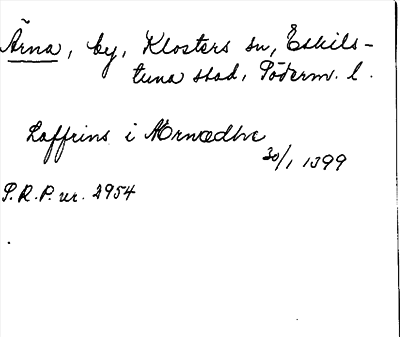 Ärna, by, Klosters sn, Eskils-
tuna stad, Söderm. l.
Laffrins i Ornædhe
30/1 1399
S.R.P. nr. 2954